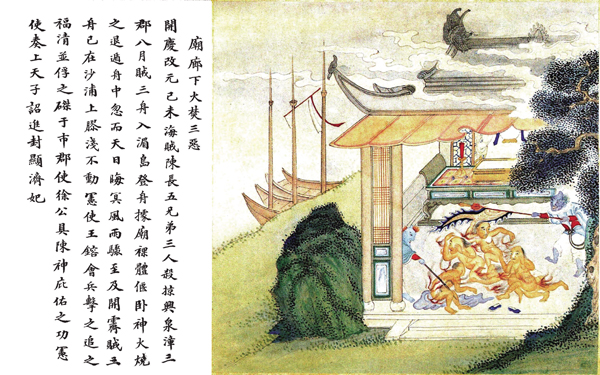 廟廊下火焚三惡
開慶改元己未海賊陳長五兄弟三人殺掠興泉漳三
郡八月賊三舟入湄島登舟據廟裸體偃臥神火燒
之退遁舟中忽而天日晦冥風雨驟至及開霽賊三
舟已在沙浦上膠淺不動憲使王鎔會兵擊之追之
福清並俘之磔于市郡使徐公具陳神庇佑之功憲
使奏上天子詔進封顯濟妃